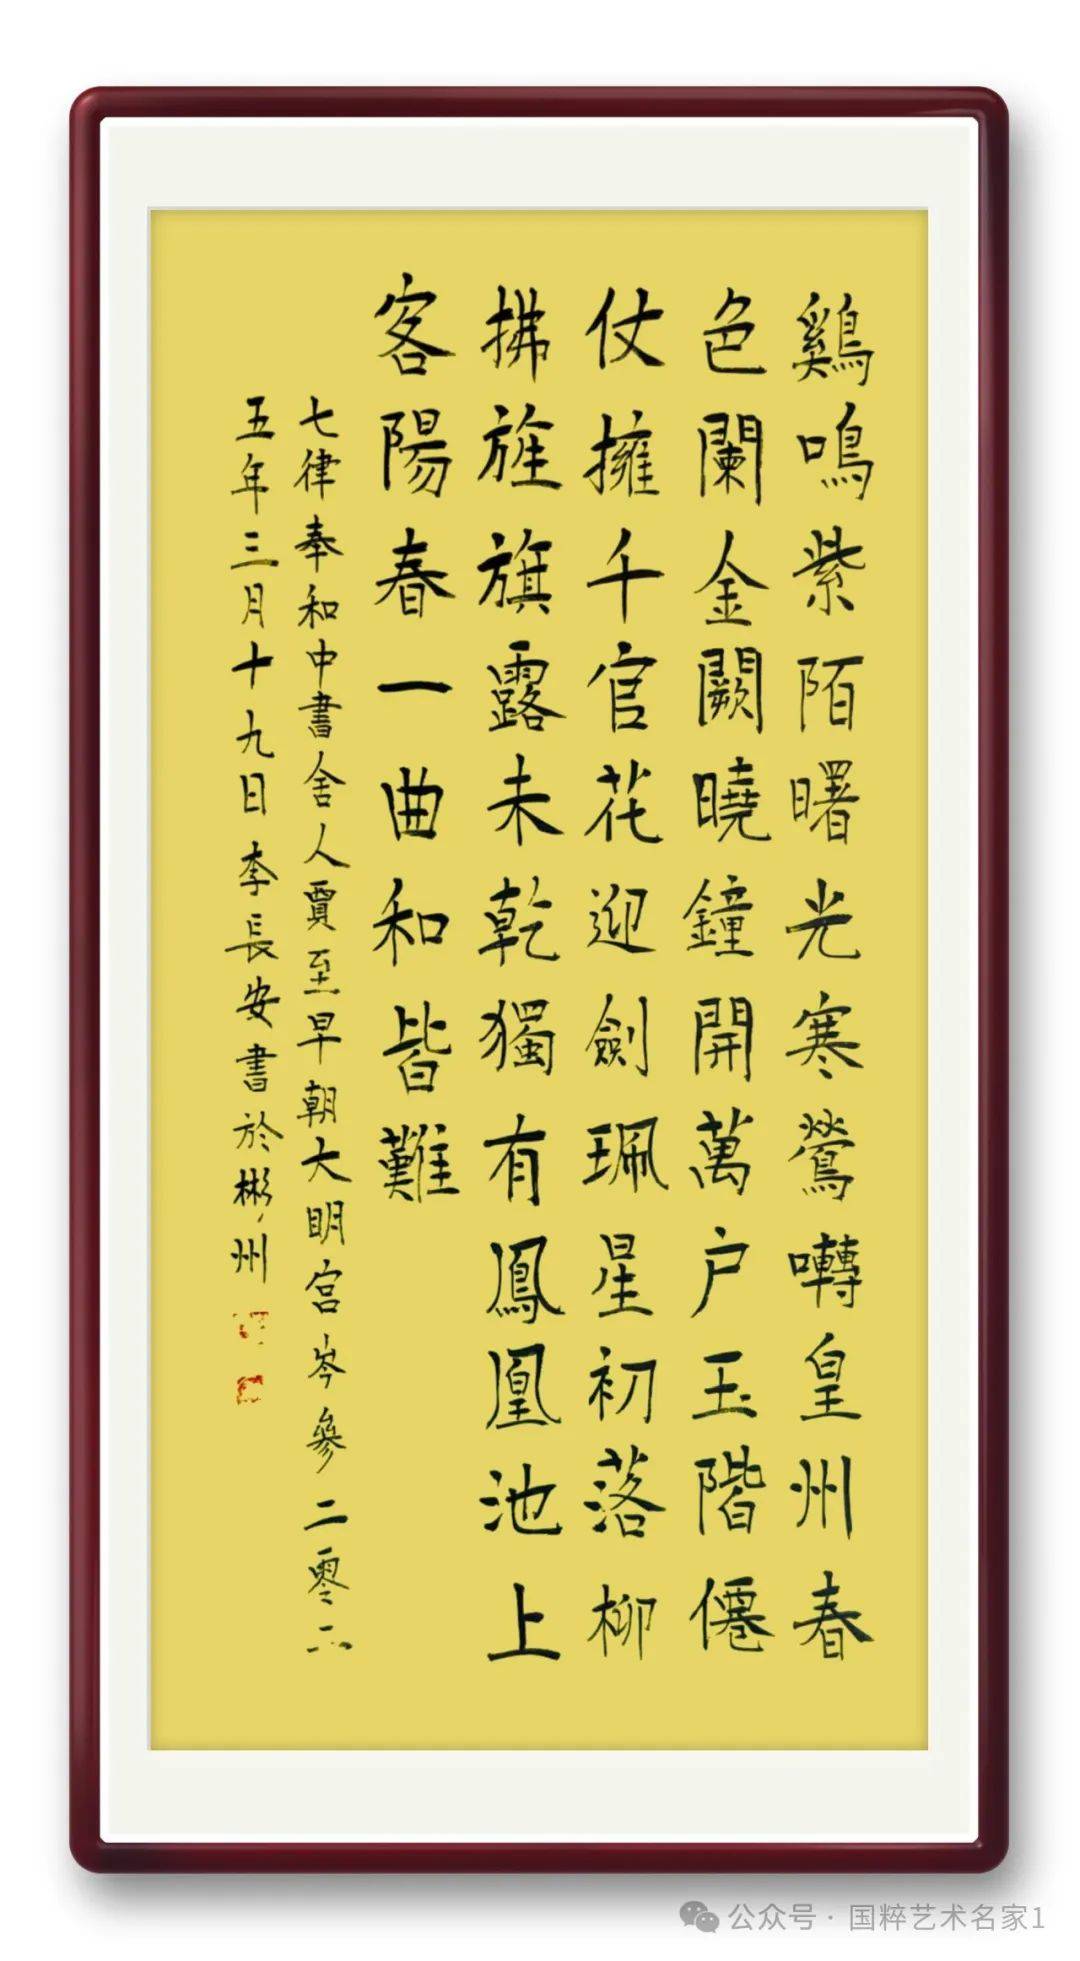 鷄鳴紫陌曙光寒鶯囀皇州春
色闌金闕曉鐘開萬户玉階僊
仗擁千官花迎劍珮星初落柳
拂旌旗露未乾獨有鳳凰池上
客陽春一曲和皆難
七律奉和中書舍人賈至早朝大明宫岑參二零二
五年三月十九日李長安書於彬州
公众号·国粹艺术名家1